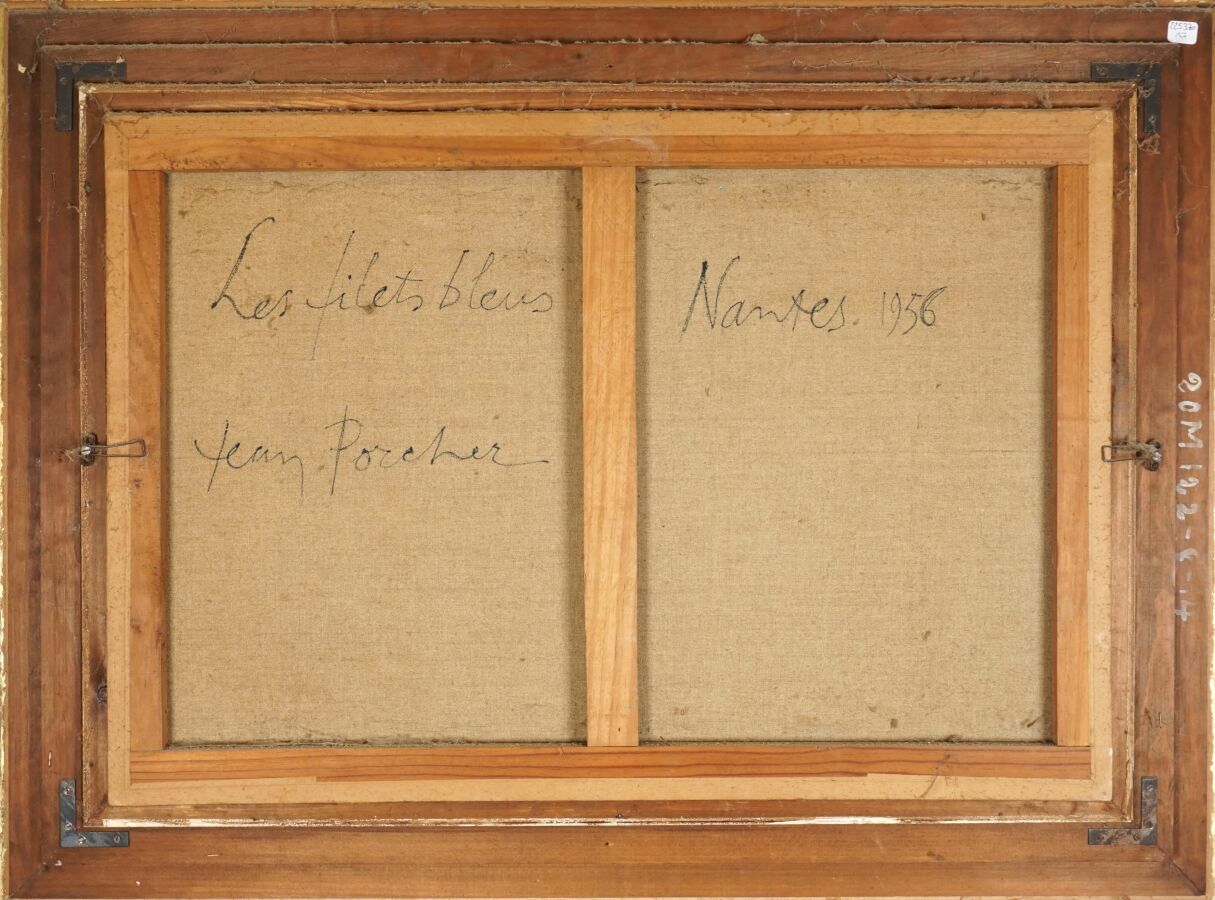 Les filets bleus
Nantes. 1956
Jean Porcher
20M 122-8-14